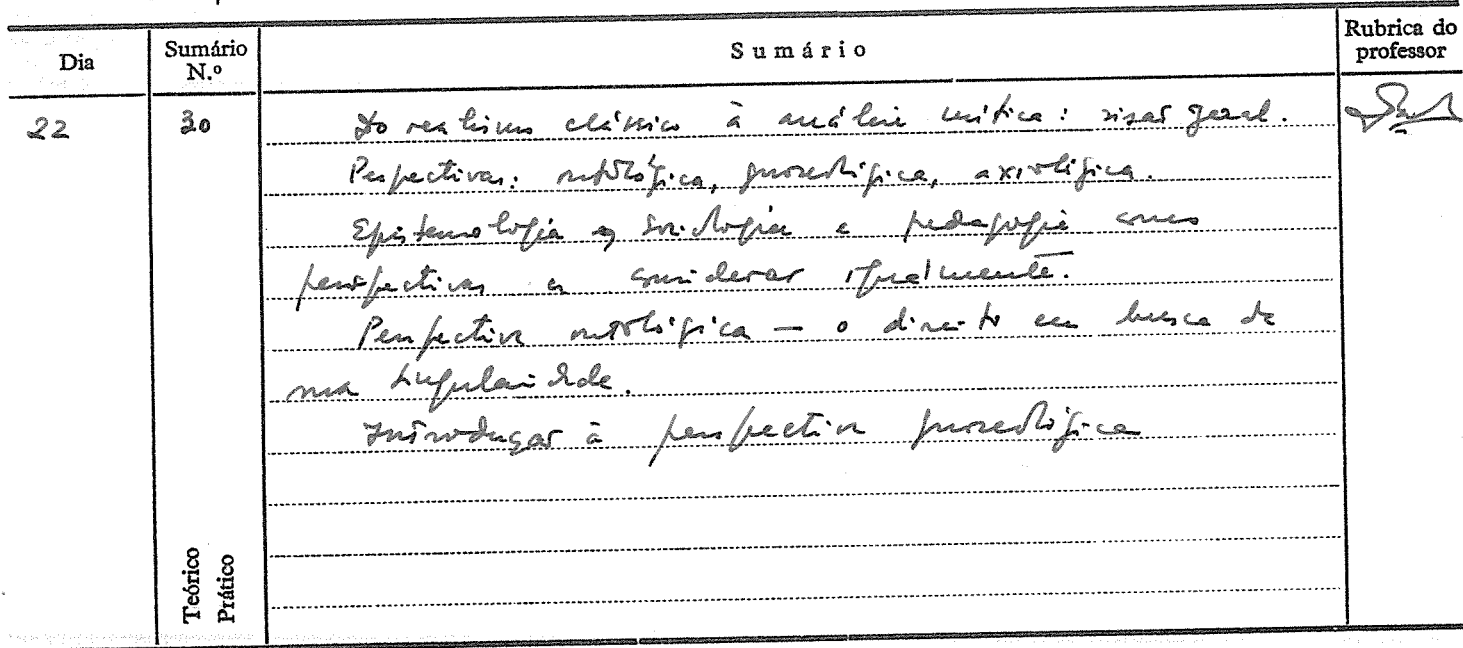 Dia
Sumário N.º
Sumário
Rubrica do professor
22
30
Do realismo clássico à análise crítica: visão geral.
Perspectivas: ontológica, gnoseológica, axiológica.
Epistemologia e Sociologia e pedagogia como
perspectivas a considerar igualmente.
Perspectiva ontológica — o direito em busca de
sua singularidade.
Introdução à perspectiva gnoseológica
Teórico
Prático